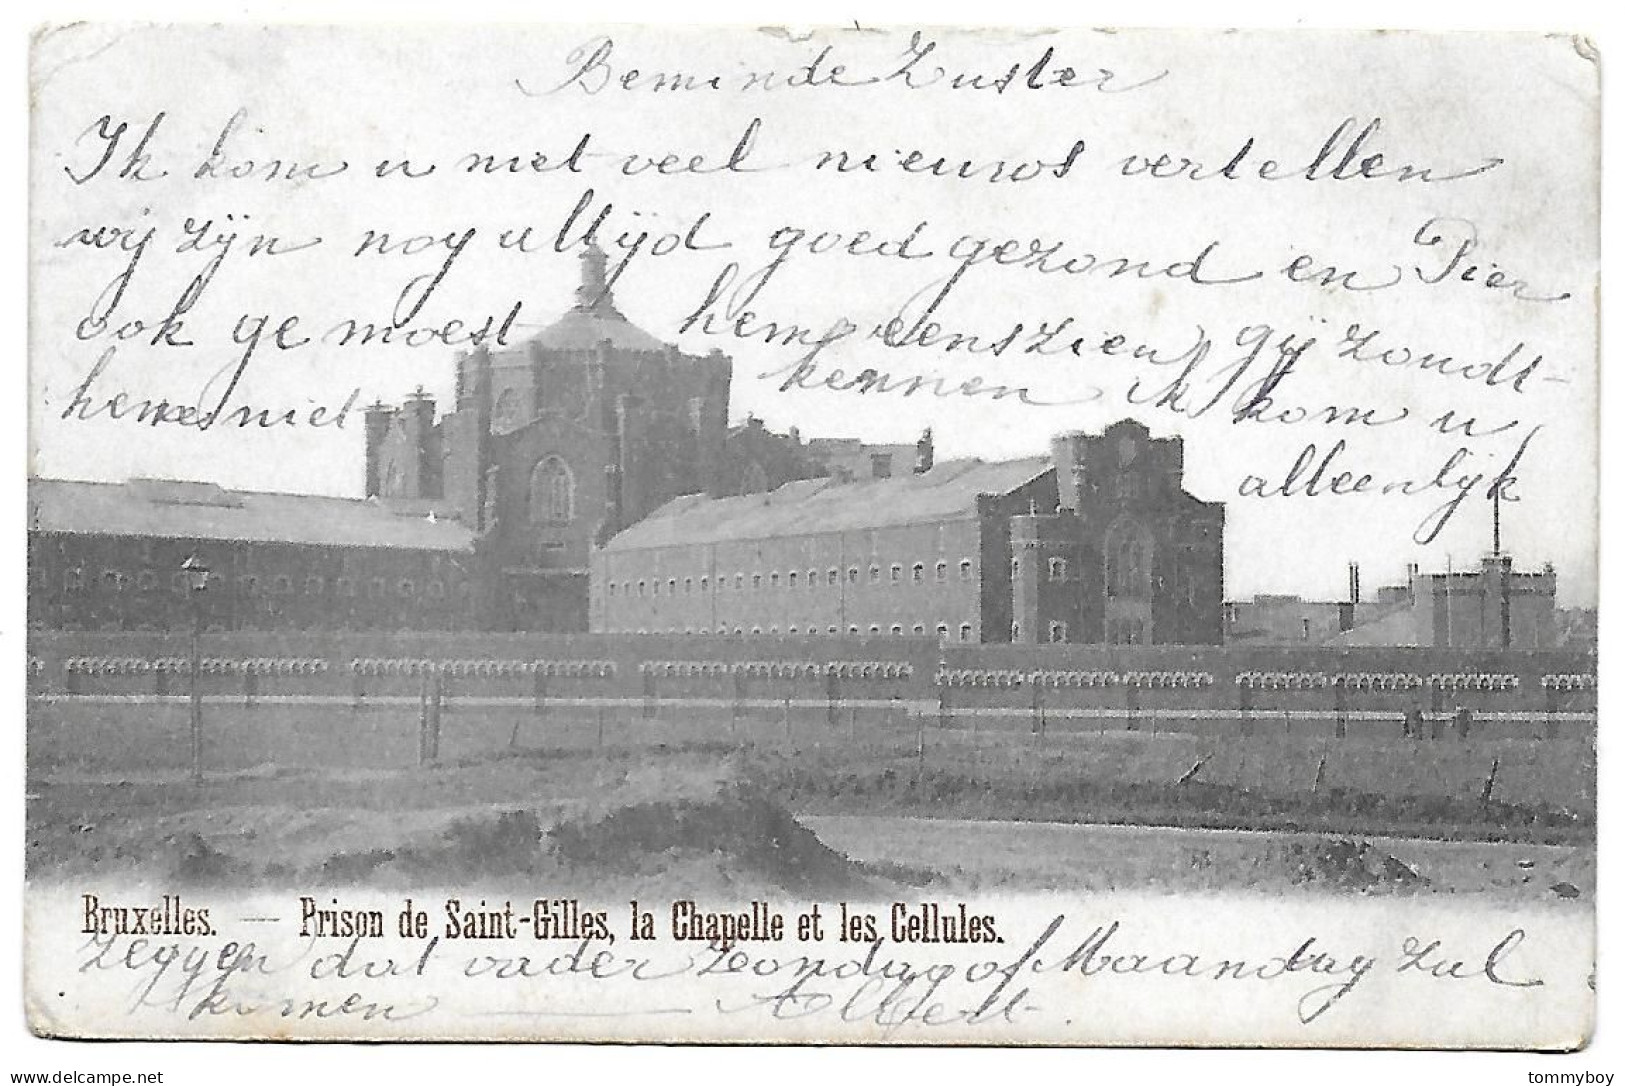 Beminde Zuster
Ik kom u niet veel nieuws vertellen
wij zijn nog altijd goed gezond en Pier
ook ge moest hem eens zien gij zoudt
hem niet kennen ik kom u
alleenlijk
Bruxelles. — Prison de Saint-Gilles, la Chapelle et les Cellules.
zeggen dat vader Zoondag of Maandag zal
komen — Albert.
delcampe.net
tommyboy